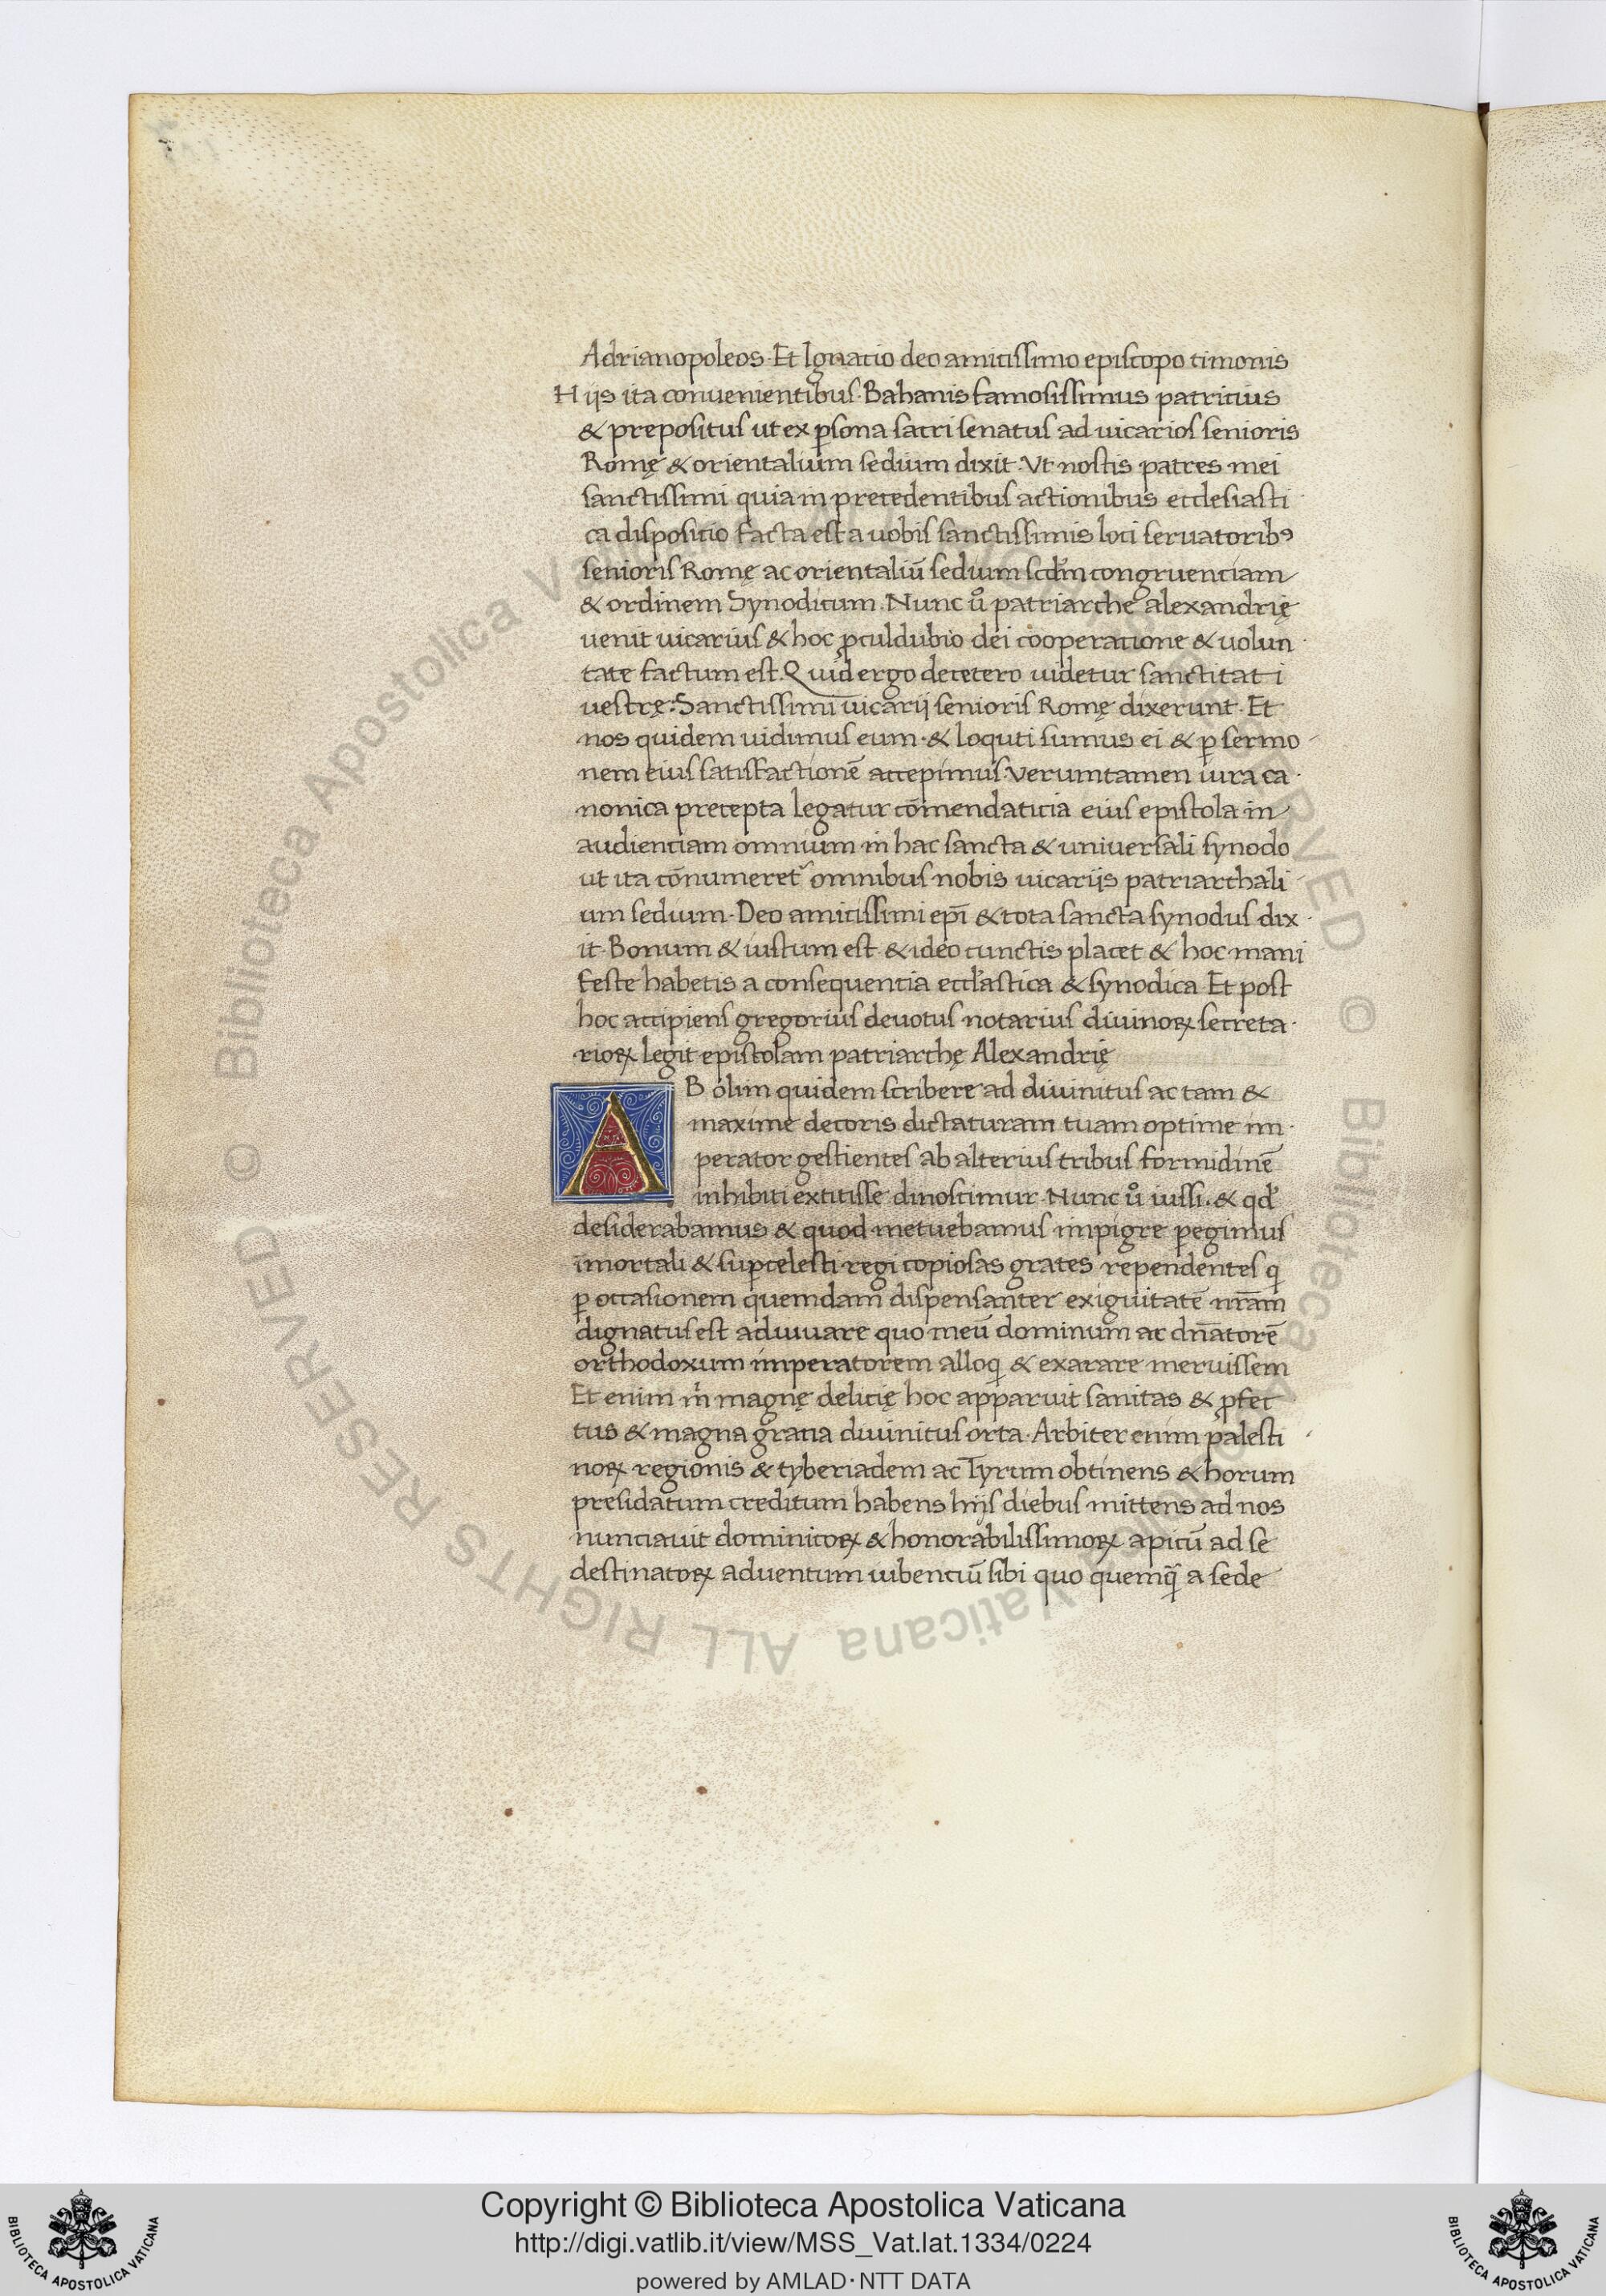 Adrianopoleos· Et Ignatio deo amicissimo episcopo timonis
Hijs ita conuenientibus· Bahanis famosissimus patricius
& prepositus ut ex ꝑsona sacri senatus ad uicarios senioris
Romę & orientalium sedium dixit· Vt nostis patres mei
sanctissimi quia in precedentibus actionibus ecclesiasti
ca dispositio facta est a uobis sanctissimis loci seruatoribꝰ
senioris Romę ac orientaliū sedium scdm̄ congruenciam
& ordinem Synodicum· Nunc uͦ patriarche alexandrię
uenit uicarius & hoc ꝓculdubio dei cooperatione & uolun
tate factum est. Quid ergo decetero uidetur sanctitati
uestrę: Sanctissimi uicarij senioris Romę dixerunt· Et
nos quidem uidimus eum· & loquti sumus ei & ꝑ sermo
nem eius satisfactionē accepimus· Verumtamen iura ca
nonica precepta legatur cōmendaticia eius epistola in
audienciam omnium in hac sancta & uniuersali synodo
ut ita cōnumeret᷑ omnibus nobis uicarijs patriarchali
um sedium· Deo amicissimi epī & tota sancta synodus dix
it· Bonum & iustum est & ideo cunctis placet & hoc mani
feste habetis a consequencia eccl̄astica & synodica Et post
hoc accipiens gregorius deuotus notarius diuinoꝝ secreta
rioꝝ legit epistolam patriarchę Alexandrię
AB olim quidem scribere ad diuinitus ac tam &
maxime decoris dictaturam tuam optime im
perator gestientes ab alterius tribus formidinē
inhibiti extitisse dinoscimur· Nunc uͦ iussi· & qd̓
desiderabamus & quod metuebamus impigre ꝑegimus
īmortali & suꝑcelesti regi copiosas grates rependentes qͥ
ꝑ occasionem quemdam dispensanter exiguitatē nr̄am
dignatus est adiuuare quo meū dominum ac dn̄atorē
orthodoxum imperatorem alloqͥ & exarare meruissem
Et enim mͥ magnę delicię hoc apparuit sanitas & ꝓfec
tus & magna gratia diuinitus orta· Arbiter enim palesti
noꝝ regionis & tyberiadem ac Tyrum obtinens & horum
presidatum creditum habens hijs diebus mittens ad nos
nunciauit dominicoꝝ & honorabilissimoꝝ apicū ad se
destinatoꝝ aduentum iubenciū sibi quo quemqͣ a sede
Copyright © Biblioteca Apostolica Vaticana
http://digi.vatlib.it/view/MSS_Vat.lat.1334/0224
powered by AMLAD·NTT DATA
BIBLIOTECA APOSTOLICA VATICANA
BIBLIOTECA APOSTOLICA VATICANA
© Biblioteca Apostolica Vaticana ALL RIGHTS RESERVED © Biblioteca Apostolica Vaticana ALL RIGHTS RESERVED